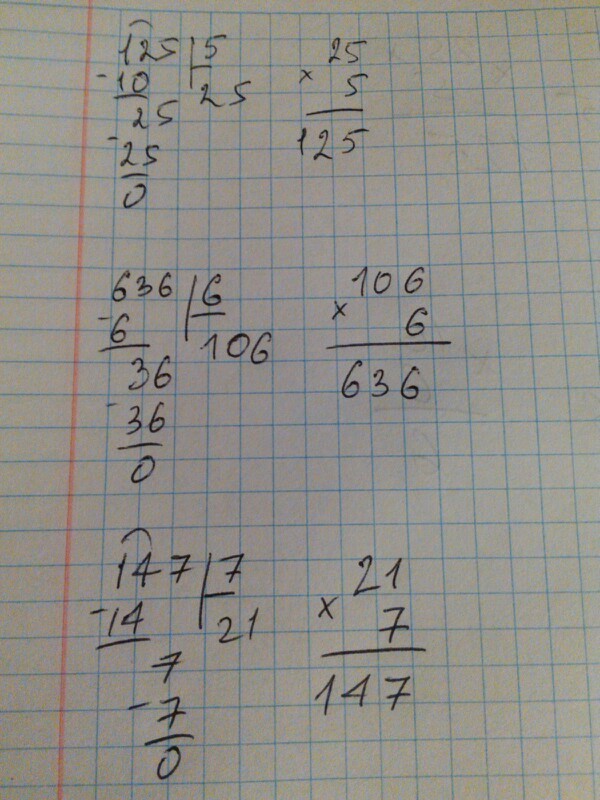 125 5 25
- 10 25 × 5
25 125
- 25
0
636 6 106
- 6 106 × 6
36 636
- 36
0
147 7 21
- 14 21 × 7
7 147
- 7
0